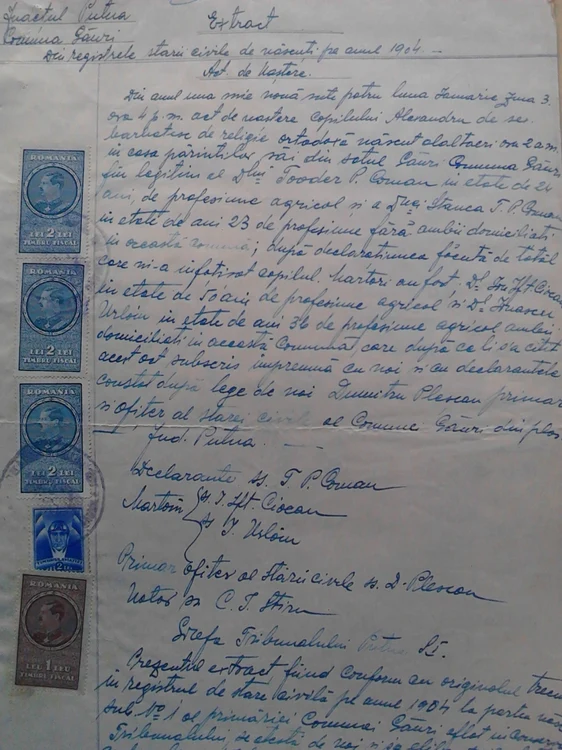 Județul Putna
Comuna Găuri
Extract
Din registrele starii civile de născuti pe anul 1904. —
Act de Naștere.
Din anul una mie nouă sute patru luna Ianuarie ziua 3.
ora 4 p.m. act de naștere copilului Alexandru de sex
barbatesc de religie ortodoxă născut alaltaeri ora 2 a.m.
in casa părintilor săi din satul Gauri Comuna Găuri
fiu legitim al Dlui Toader P. Coman in etate de 24
ani, de profesiune agricol si a Dnei Stanca T. P. Coman
in etate de ani 23 de profesiune fără ambii domiciliati
in această comună; după declaratiunea făcută de tatăl
care ni-a infătisat copilul. Martori au fost Dl. In. Ifl. Ciocan
in etate de 50 ani de profesiune agricol si Dl.
Urloiu in etate de ani 36 de profesiune agricol ambii
domiciliati in această Comună, care după ce li s'a citit
acest act subscris impreună cu noi si cu declarantele
constat după lege de noi Dumitru Plescan primar
si ofiter al starei civile al Comunei Găuri din plas
Jud. Putna. —
Declarante ss. T. P. Coman
Martori ss I. Ift. Ciocan
ss I. Urloiu
Primar ofiter al stării civile ss. D. Plescan
Notar ss C. I.
Grefa Tribunalului Putna S. I.
Prezentul extract fiind conform cu originalul trecut
in registrul de stare civilă pe anul 1904 la partea
sub No 1 al primăriei Comunei Găuri aflat in
Tribunalului se atestă de noi si se
ROMANIA
LEI 2 LEI
TIMBRU FISCAL
ROMANIA
LEI 2 LEI
TIMBRU FISCAL
ROMANIA
LEI 2 LEI
TIMBRU FISCAL
ROMANIA
LEU 1 LEU
TIMBRU FISCAL